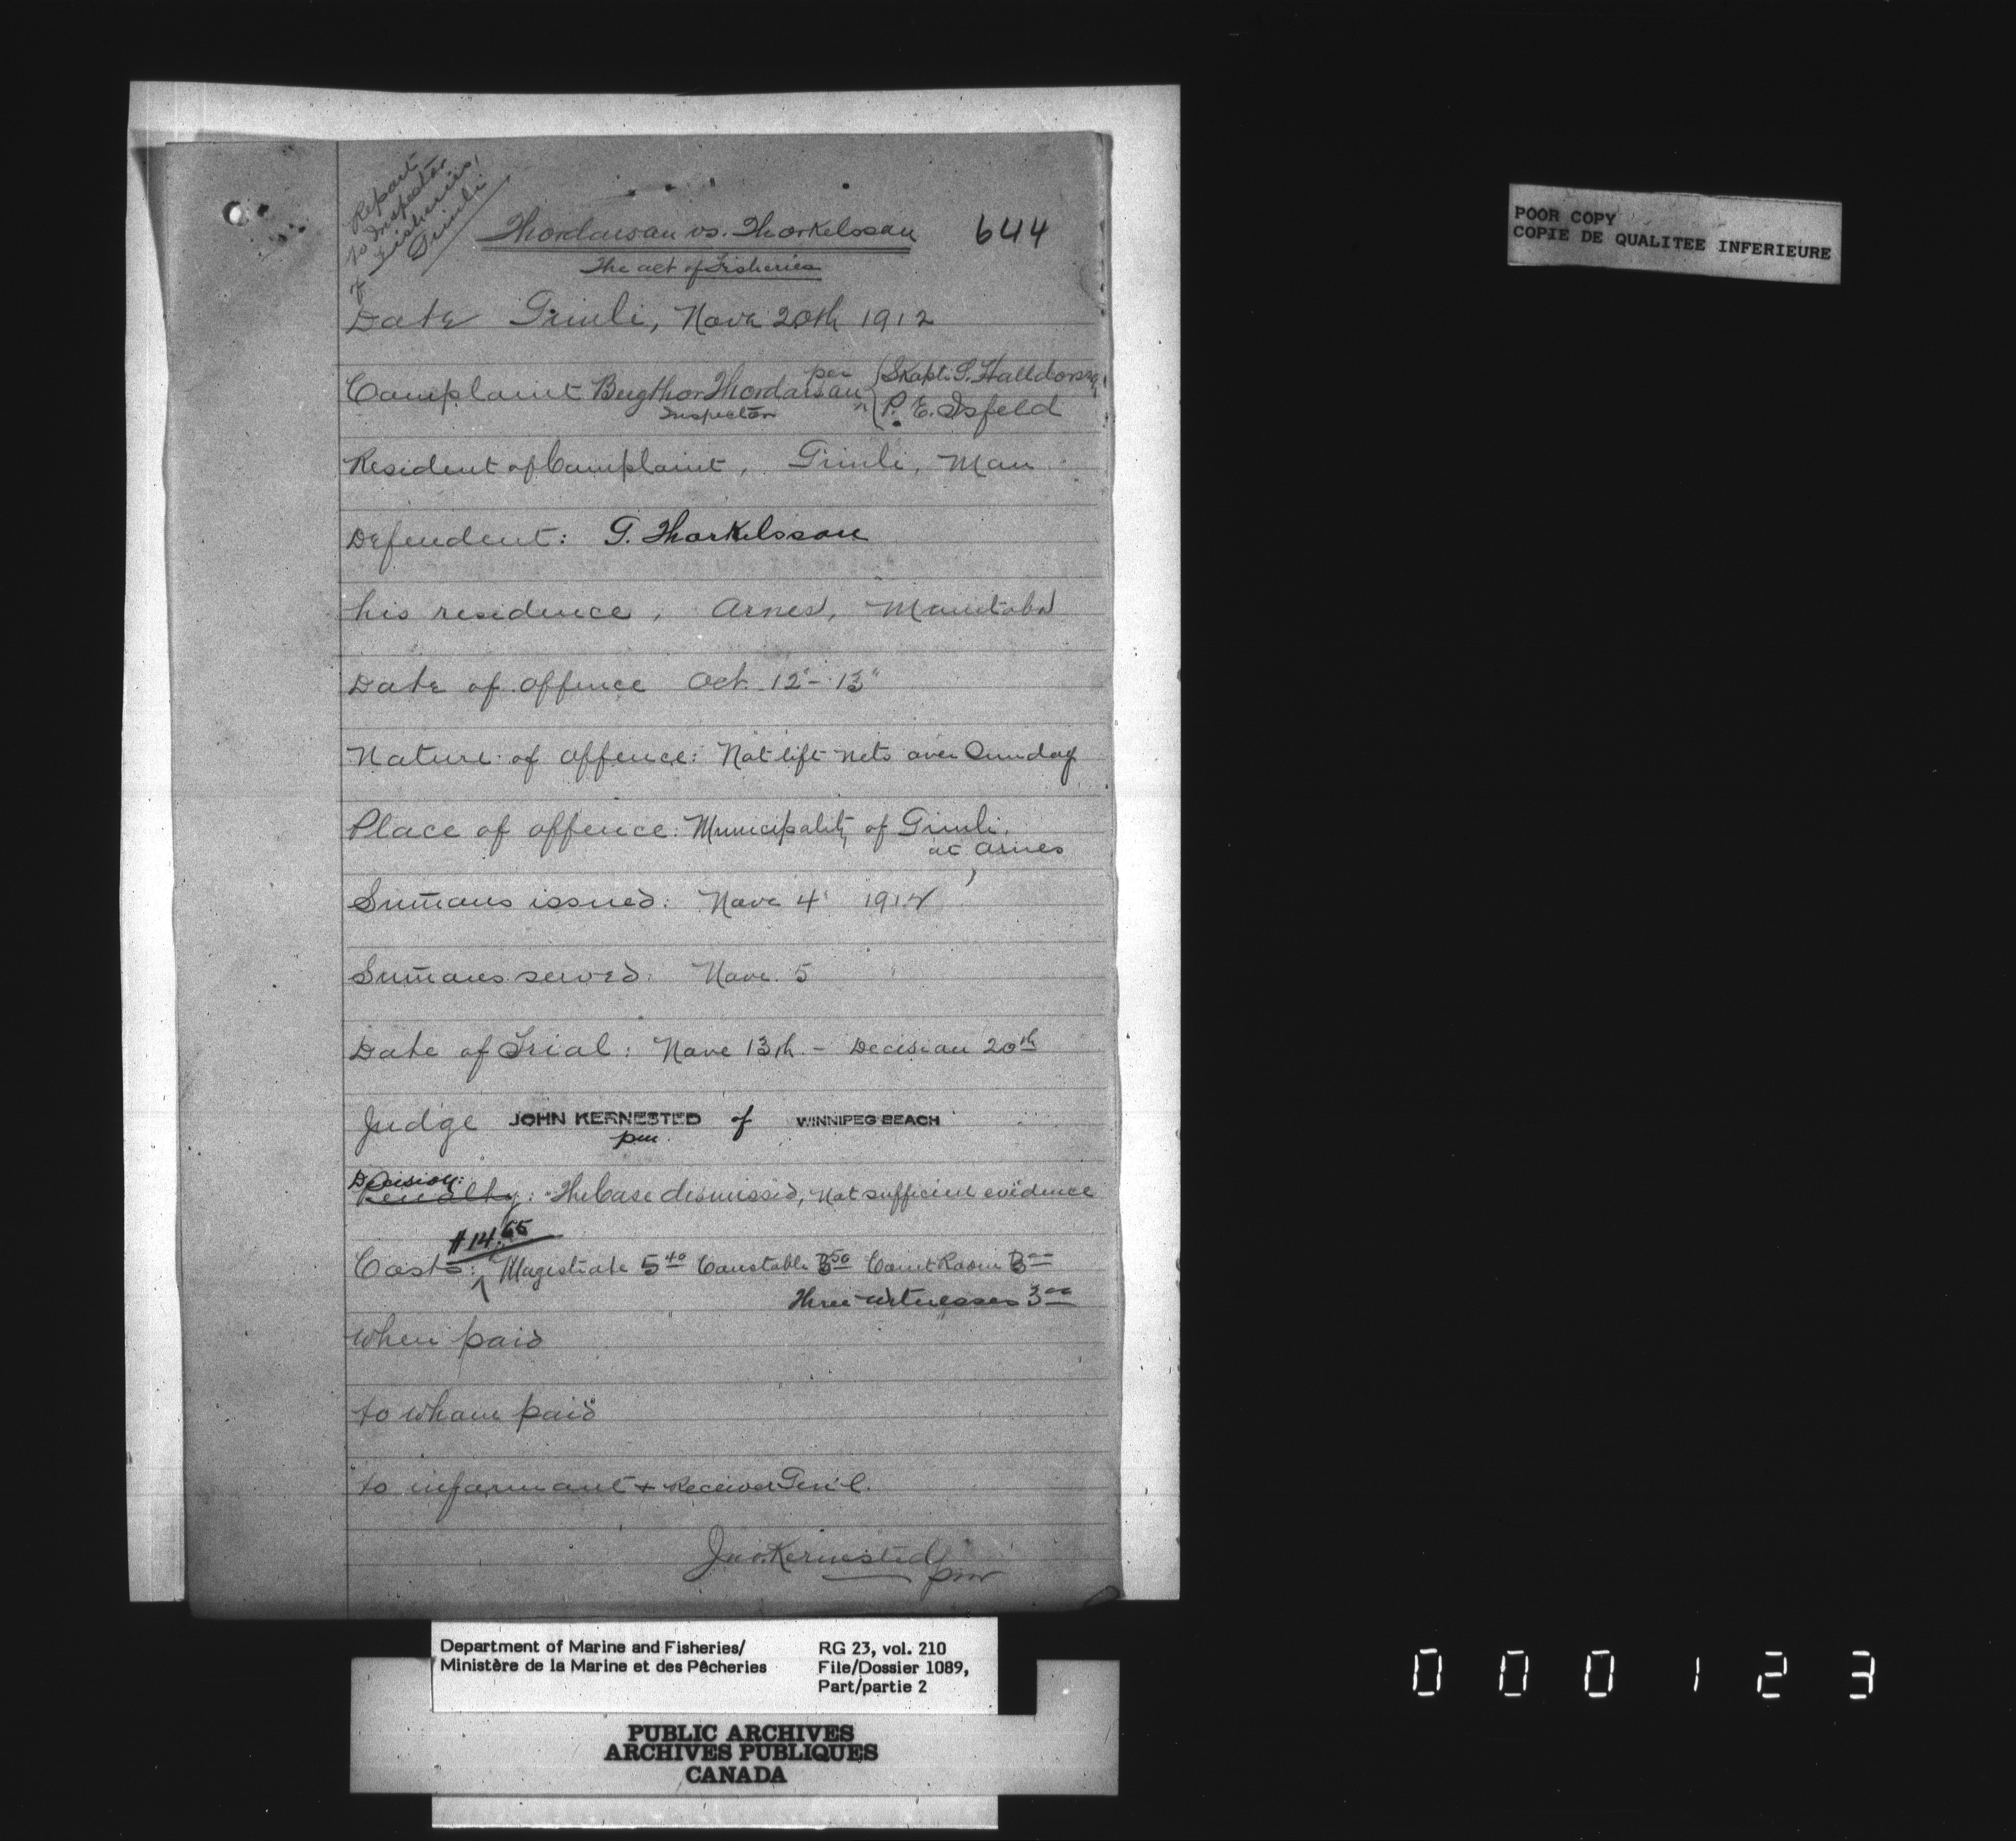 Report
to Inspector
of Fisheries,
Gimli
Thordarson vs. Thorkelsson
644
The act of Fisheries
Date Gimli, Nov. 20th 1912
Complaint Bergthor Thordarson per { Skapti S. Halldorson,
Inspector P. E. Isfeld
Resident of Complaint, Gimli, Man
Defendent: G. Thorkelsson
his residence, Arnes, Manitoba
Date of offence Oct. 12"- 13"
Nature of offence: Not lift nets over Sunday
Place of offence: Municipality of Gimli,
at Arnes
Sum̄ons issued: Nov. 4' 1912
Sum̄ons served: Nov. 5
Date of Trial: Nov. 13th - Decision 20th
Judge JOHN KERNESTED of WINNIPEG BEACH
pm
Decision:
Penalty: The Case dismissed, not sufficient evidence
$14.65
Costs: Magistrate 5.40 Constable 3.50 Court Room 3.00
Three witnesses 3.00
when paid
to whom paid
to informant + Receiver Gen'l.
Jno. Kernested
pm
POOR COPY
COPIE DE QUALITEE INFERIEURE
Department of Marine and Fisheries/
Ministère de la Marine et des Pêcheries
RG 23, vol. 210
File/Dossier 1089,
Part/partie 2
PUBLIC ARCHIVES
ARCHIVES PUBLIQUES
CANADA
000123